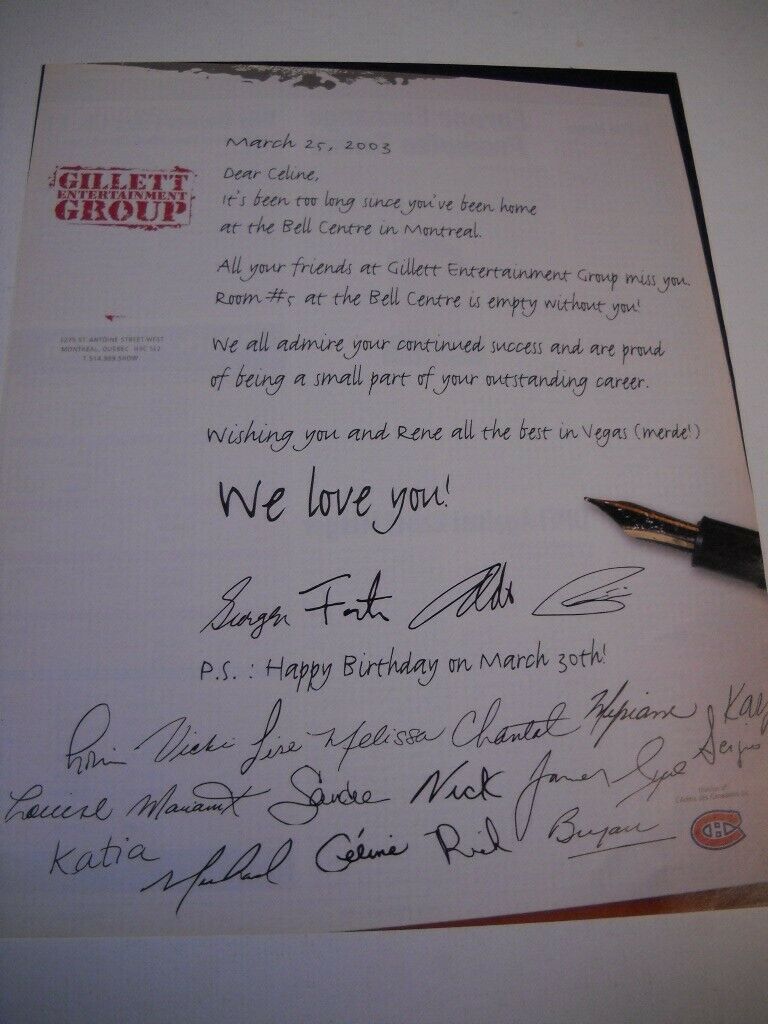 March 25, 2003
GILLETT
ENTERTAINMENT
GROUP
Dear Celine,
It's been too long since you've been home
at the Bell Centre in Montreal.
All your friends at Gillett Entertainment Group miss you.
Room #5 at the Bell Centre is empty without you!
1275 ST. ANTOINE STREET WEST
MONTREAL, QUEBEC H3C 5L2
T 514.989.SHOW
We all admire your continued success and are proud
of being a small part of your outstanding career.
Wishing you and Rene all the best in Vegas (merde!)
We love you!
P.S. : Happy Birthday on March 30th!
Vicki Lise Melissa Chantal
Louise Nick Sergio
Katia Michael Céline Bryan
CH